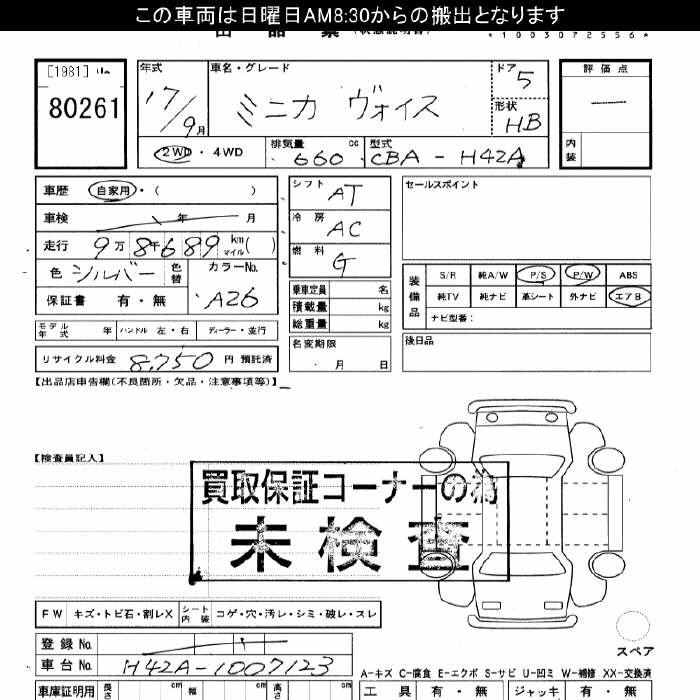 この車両は日曜日AM8:30からの搬出となります
*1003072556*
[1981] 80261
年式 17/9月
車名・グレード ミニカ ヴォイス
ドア 5
形状 HB
評価点 —
内装
2WD・4WD
排気量 660 cc
型式 CBA-H42A
車歴 自家用・( )
車検 年 月
走行 9万8千689 km マイル( )
色 シルバー 色替 カラーNo. A26
保証書 有・無
シフト AT
冷房 AC
燃料 G
乗車定員 名
積載量 kg
総重量 kg
名変期限 ・月 日
セールスポイント
装備品 S/R 純A/W P/S P/W ABS
純TV 純ナビ 革シート 外ナビ エアB
ナビ型番:
後日品
モデル年式 年 ハンドル 左・右 ディーラー・並行
リサイクル料金 8,750 円 預託済
【出品店申告欄(不良箇所・欠品・注意事項等)】
【検査員記入】
買取保証コーナーの為
未検査
FW キズ・トビ石・割レX シート内装 コゲ・穴・汚レ・シミ・破レ・スレ
スペア
登録No.
車台No. H42A-1007123
A-キズ C-腐食 E-エクボ S-サビ U-凹ミ W-補修 XX-交換済
車庫証明用 長さ cm 幅 cm 高さ cm
工具 有・無 ジャッキ 有・無